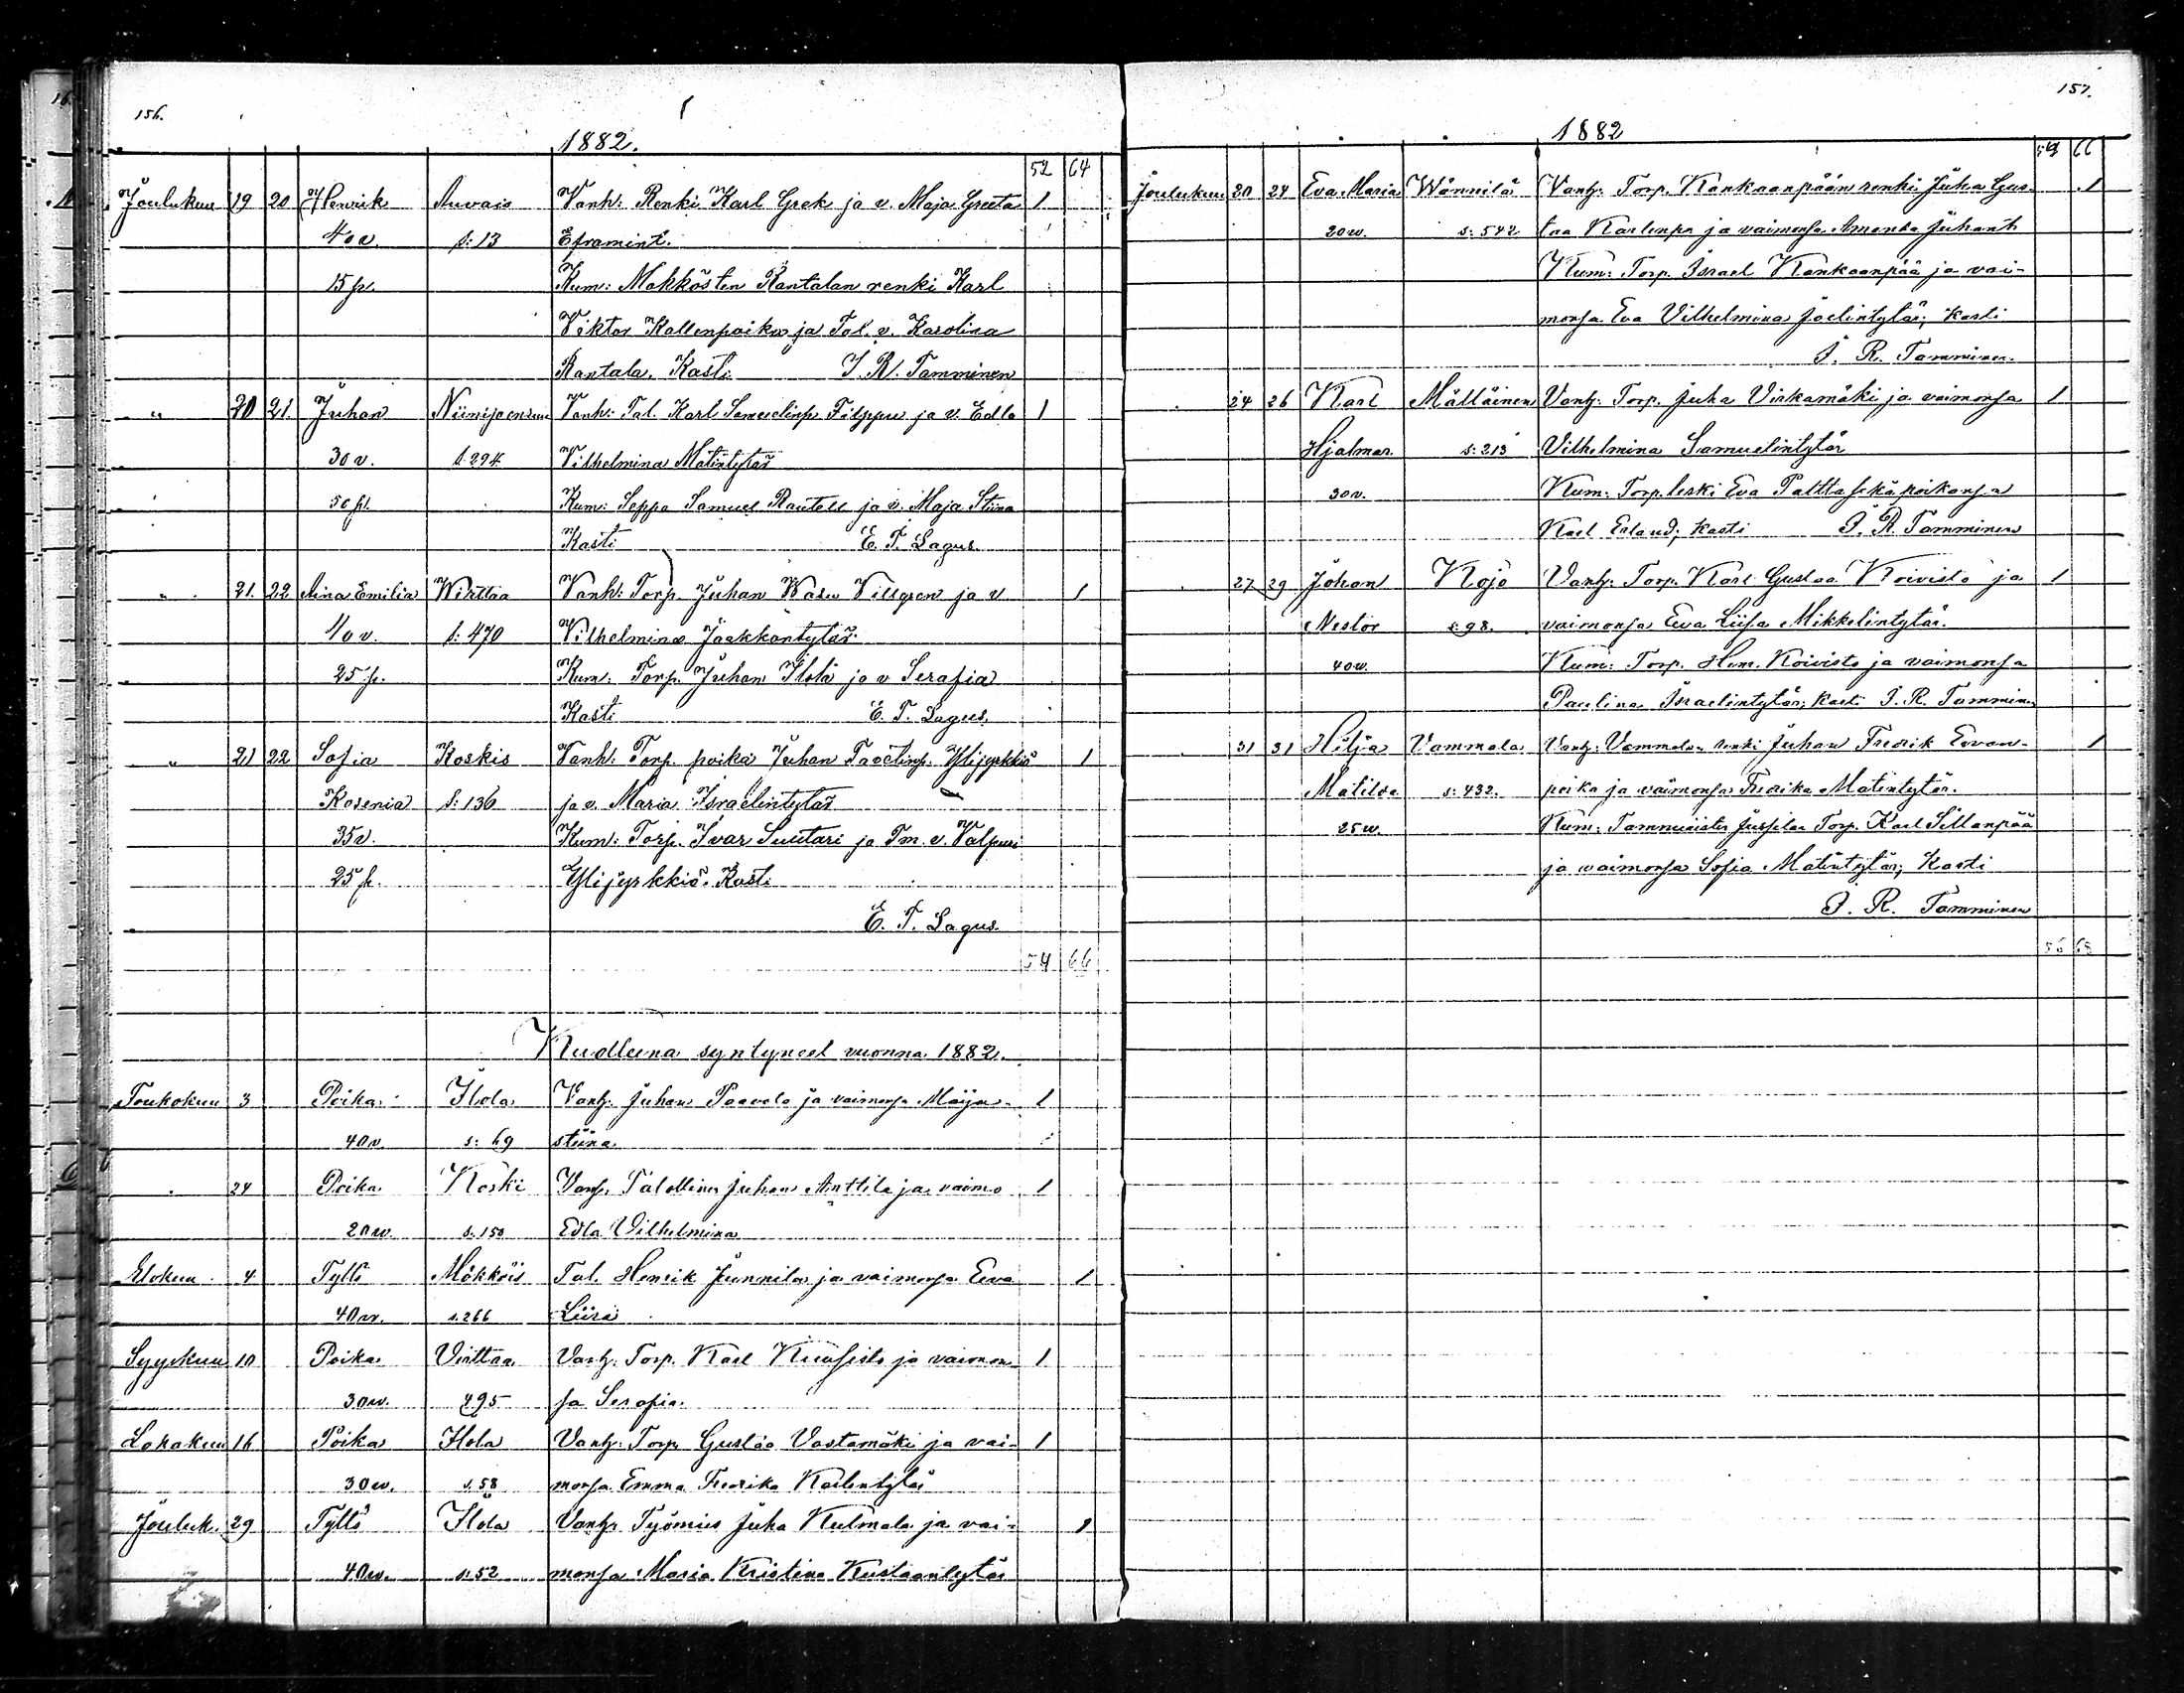 156.
1882.
52 64
Joulukuu 19 20 Henrik Auvais Vanh: Renki Karl Grek ja v. Maja Greeta 1
40 v. s: 13 Eframint.
15 p. Kum: Makkösten Rantalan renki Karl
Viktor Kallenpoika ja Tal. v. Karolina
Rantala. Kasti J. R. Tamminen
" 20 21. Juhan Niinijoensuu Vanh: Tal. Karl Samuelinp. Filppu ja v. Edla 1
30 v. s. 294 Vilhelmina Matintytär
50 p. Kum: Seppä Samuel Rautell ja v. Maja Stina
Kasti E. T. Lagus.
" 21. 22 Aina Emilia Wirttaa Vanh: Torp. Juhan Wasu Villgren ja v. 1
40 v. s: 470 Vilhelmina Jaakkontytär.
25 p. Kum: Torp. Juhan Ilola ja v Serafia
Kasti E. T. Lagus.
" 21 22 Sofia Koskis Vanh: Torp. poika Juhan Taavetinp. Ylijyrkkiö 1
Kosenia s: 136 ja v. Maria Israelintytär
35 v. Kum: Torp. Ivar Suutari ja Tm. v. Valpuri
25 p. Ylijyrkkiö. Kasti
E. T. Lagus.
54 66
Kuolleena syntyneet vuonna 1882.
Toukokuu 3 Poika Ilola Vanh: Juhan Paavola ja vaimonsa Maija- 1
40 v. s: 69 stiina.
24 Poika Koski Vanh. Talollinen Juhan Anttila ja vaimo 1
20 w. s. 150 Edla Vilhelmina
Elokuu 4 Tyttö Mökköis Tal. Henrik Junnila ja vaimonsa Eeva 1
40 w. s. 266 Liisa
Syyskuu 10 Poika Virttaa Vanh: Torp. Karl Kuusisto ja vaimon- 1
30 w. 495 sa Serafia.
Lokakuu 16 Poika Ilola Vanh: Torp Gustaa Vastamäki ja vai- 1
30 w. s. 58 monsa Emma Fredrika Kaarlentytär
Jouluk. 29 Tyttö Ilola Vanh Työmies Juha Kulmala ja vai- 1
40 w. s. 52 monsa Maria Kristina Kustaantytär
157.
1882
54 66
Joulukuu 20 24 Eva Maria Wännilä Vanh: Torp. Kankaanpään renki Juha Gus- 1
20 w. s: 542 taa Kaarlenp. ja vaimonsa Amanda Juhant.
Kum: Torp. Israel Kankaanpää ja vai-
monsa Eva Vilhelmina Joelintytär; Kasti
J. R. Tamminen.
24 26 Karl Mälläinen Vanh: Torp. Juha Virkamäki ja vaimonsa 1
Hjalmar. s: 213 Vilhelmina Samuelintytär
30 v. Kum: Torp. leski Eva Paltta sekä poikansa
Karl Erland; Kasti J. R. Tamminen
27 29 Johan Kojo Vanh: Torp. Karl Gustaa Koivisto ja 1
Nestor s: 98. vaimonsa Eeva Liisa Mikkelintytär.
40 w. Kum: Torp. Hem. Koivisto ja vaimonsa
Paulina Israelintytär; Kasti J. R. Tamminen
31 31 Hilja Vammala Vanh: Vammalan renki Juhan Fredrik Eevan- 1
Matilda s: 432. poika ja vaimonsa Fredrika Matintytär.
25 w. Kum: Torp. Karl Sillanpää
ja vaimonsa Sofia Matintytär; Kasti
J. R. Tamminen
56 68